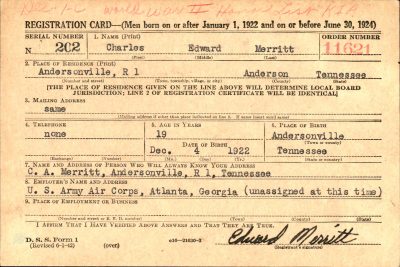 REGISTRATION CARD—(Men born on or after January 1, 1922 and on or before June 30, 1924)
SERIAL NUMBER 1. NAME (Print) ORDER NUMBER
N 202 Charles Edward Merritt 11621
(First) (Middle) (Last)
2. PLACE OF RESIDENCE (Print)
Andersonville, R 1 Anderson Tennessee
(Number and street) (Town, township, village, or city) (County) (State)
[THE PLACE OF RESIDENCE GIVEN ON THE LINE ABOVE WILL DETERMINE LOCAL BOARD
JURISDICTION; LINE 2 OF REGISTRATION CERTIFICATE WILL BE IDENTICAL]
3. MAILING ADDRESS
same
[Mailing address if other than place indicated on line 2. If same insert word same]
4. TELEPHONE 5. AGE IN YEARS 6. PLACE OF BIRTH
none 19 Andersonville
DATE OF BIRTH (Town or county)
Dec. 4 1922 Tennessee
(Exchange) (Number) (Mo.) (Day) (Yr.) (State or country)
7. NAME AND ADDRESS OF PERSON WHO WILL ALWAYS KNOW YOUR ADDRESS
C. A. Merritt, Andersonville, R 1, Tennessee
8. EMPLOYER'S NAME AND ADDRESS
U. S. Army Air Corps, Atlanta, Georgia (unassigned at this time)
9. PLACE OF EMPLOYMENT OR BUSINESS
(Number and street or R. F. D. number) (Town) (County) (State)
I AFFIRM THAT I HAVE VERIFIED ABOVE ANSWERS AND THAT THEY ARE TRUE.
D. S. S. Form 1
(Revised 6-1-42) (over) Edward Merritt
(Registrant's signature)